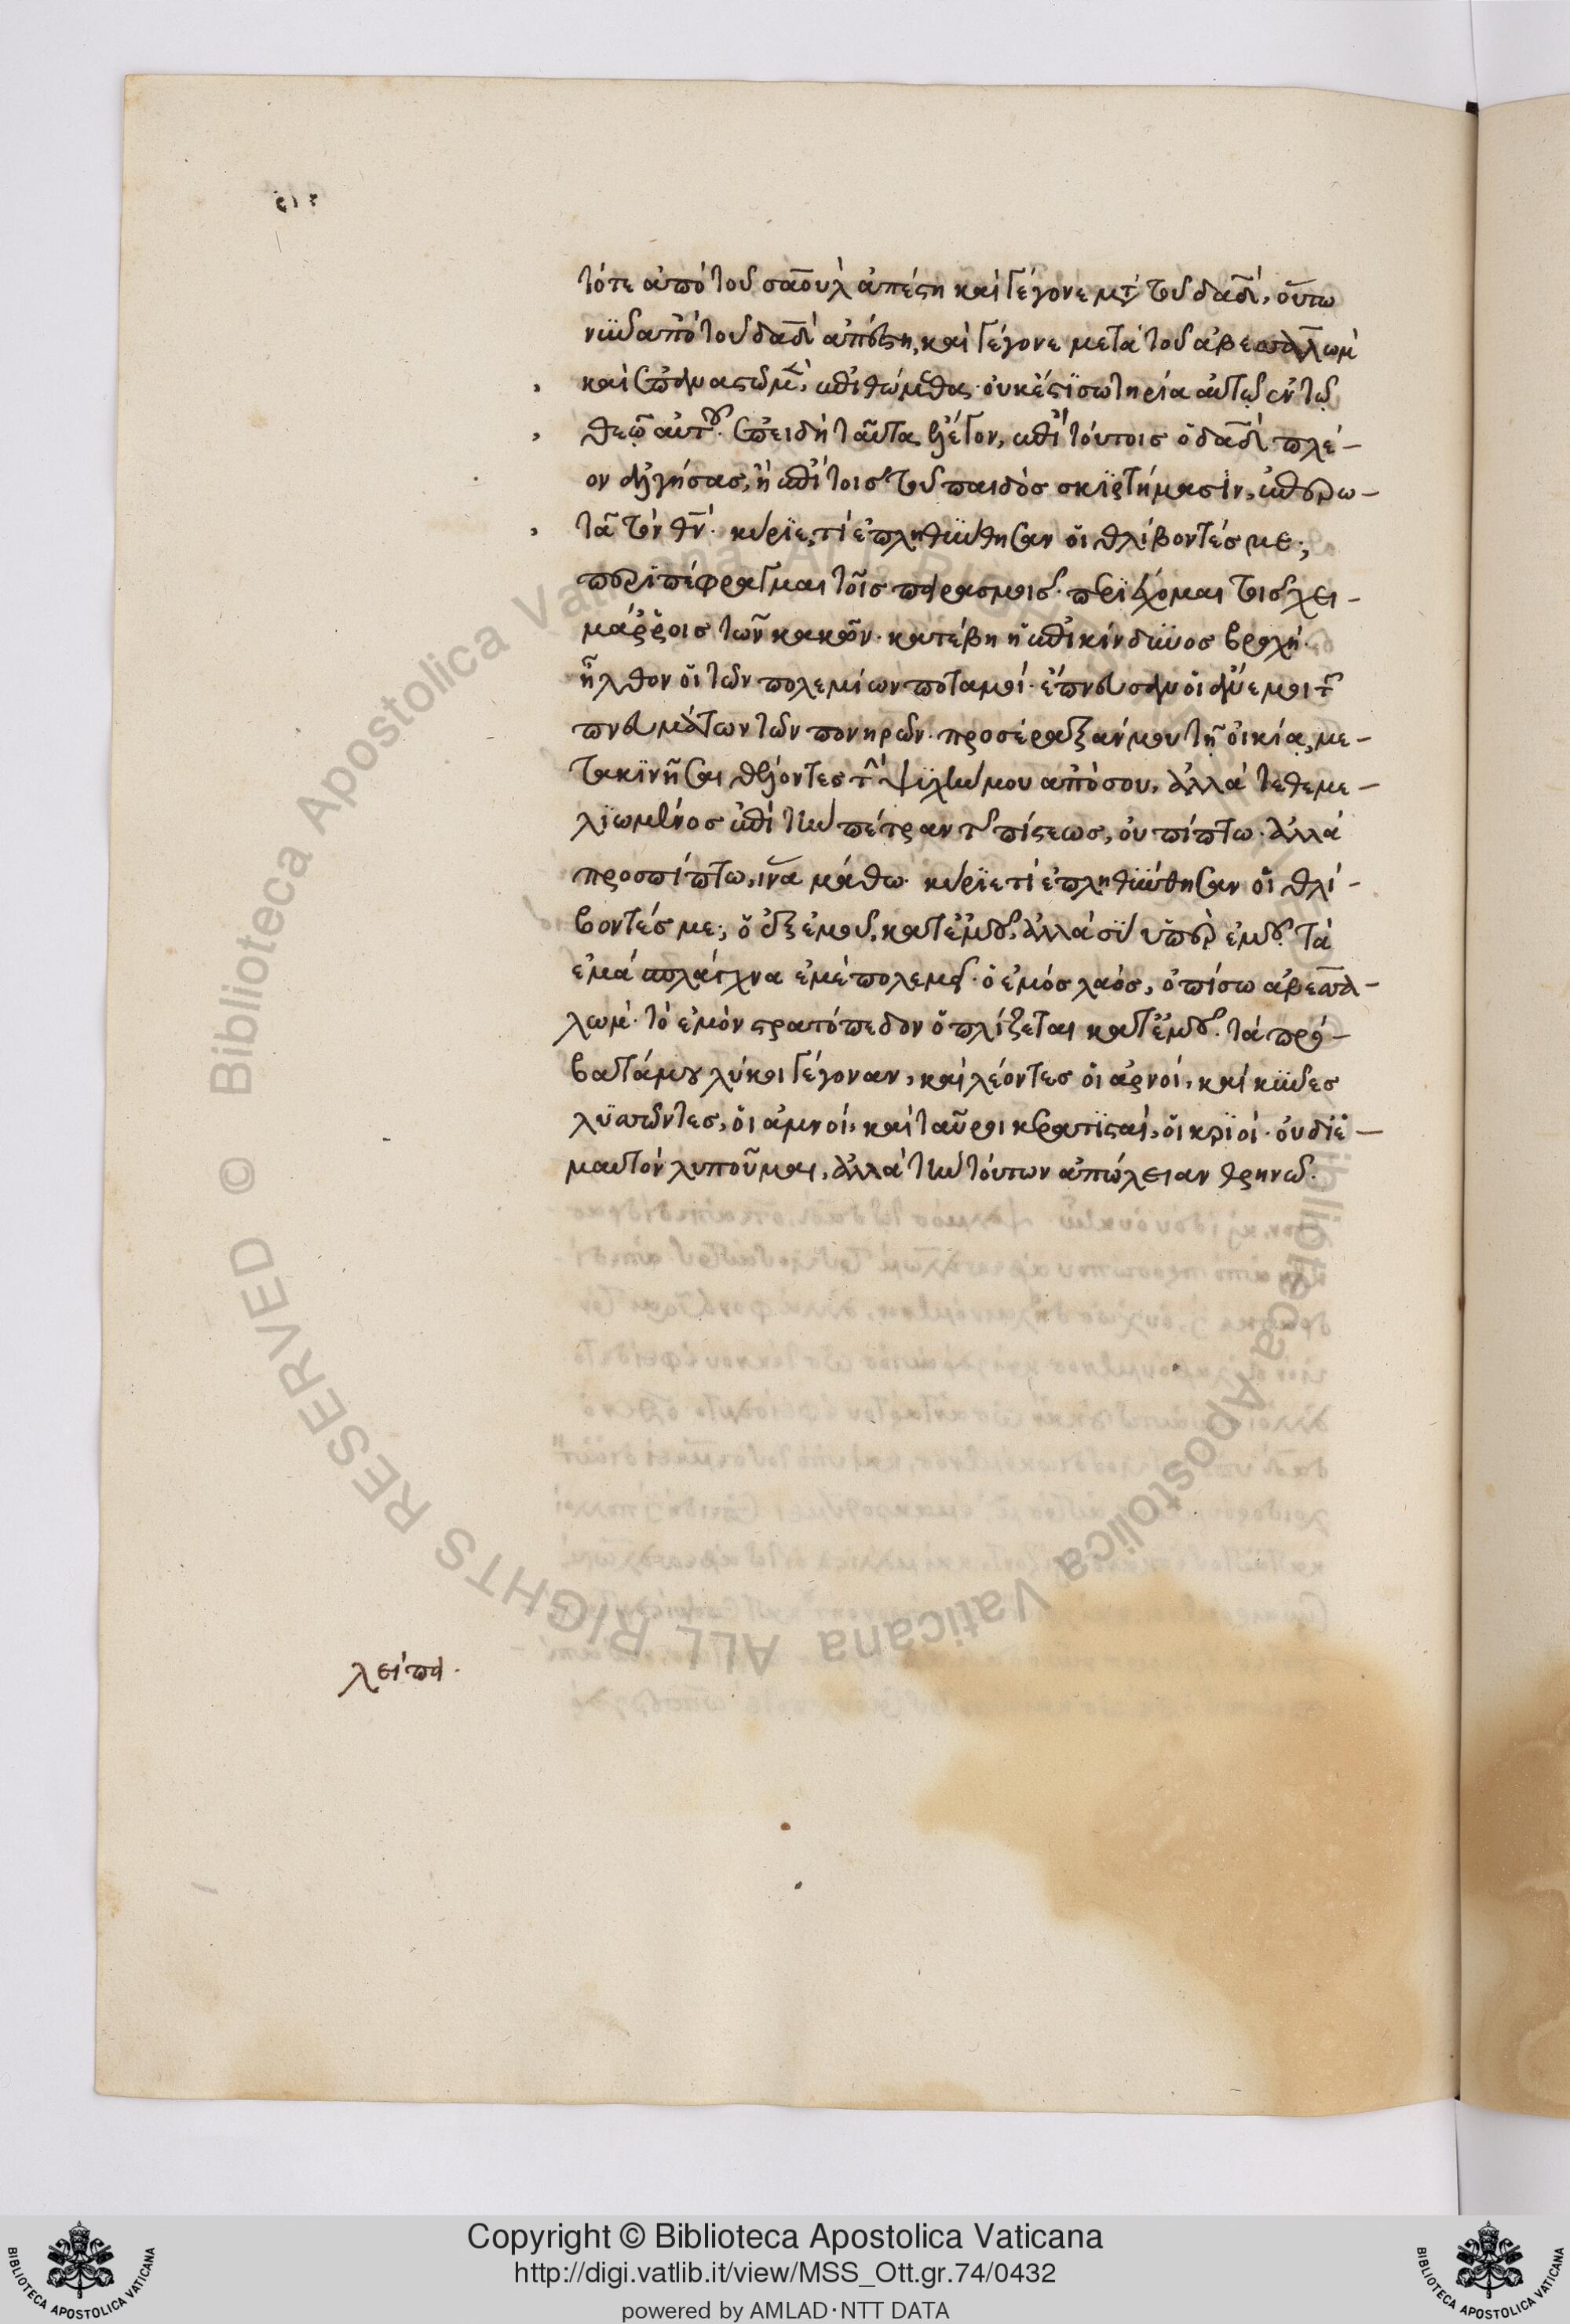 τότε ἀπὸ τοῦ σαοὺλ ἀπέστη καὶ γέγονε μετὰ τοῦ δαδ, οὕτω
νῦν ἀπὸ τοῦ δαδ ἀπέστη, καὶ γέγονε μετὰ τοῦ ἀβεσαλλὼμ
καὶ
οὐκ ἔστι σωτηρία αὐτῷ ἐν τῷ
θεῷ αὐτοῦ. ἐπειδὴ ταῦτα ἔλεγον, ἐπὶ τούτοις ὁ δαδ πλέ-
ον ἀλγήσας, ἢ ἐπὶ τοῖς τοῦ παιδὸς σκιρτήμασιν, ἐπερω-
τᾷ τὸν θν. κύριε, τί ἐπληθύνθησαν οἱ θλίβοντές με;
περιπέφραγμαι τοῖς πειρασμοῖς. περιέχομαι τοῖς χει-
μάρροις τῶν κακῶν. κατέβη ἡ ἐπικίνδυνος βροχή.
ἦλθον οἱ τῶν πολεμίων ποταμοί. ἔπνευσαν οἱ ἄνεμοι τῶν
πνευμάτων τῶν πονηρῶν. προσέραξάν μου τῇ οἰκίᾳ, με-
τακινῆσαι θέλοντες τὴν ψυχήν μου ἀπὸ σοῦ, ἀλλὰ τεθεμε-
λιωμένος ἐπὶ τὴν πέτραν τῆς πίστεως, οὐ πίπτω. ἀλλὰ
προσπίπτω, ἵνα μάθω. κύριε τί ἐπληθύνθησαν οἱ θλί-
βοντές με; ὁ ἐξ ἐμοῦ, κατ' ἐμοῦ, ἀλλὰ σὺ ὑπὲρ ἐμοῦ. τὰ
ἐμὰ σπλάγχνα ἐμὲ πολεμεῖ. ὁ ἐμὸς λαὸς, ὀπίσω ἀβεσαλ-
λώμ. τὸ ἐμὸν στρατόπεδον ὁπλίζεται κατ' ἐμοῦ. τὰ πρό-
βατά μου λύκοι γέγοναν, καὶ λέοντες οἱ ἀρνοί, καὶ κύνες
λυσσῶντες, οἱ ἀμνοί, καὶ ταῦροι κερατισταί, οἱ κριοί. οὐ δι' ἐ-
μαυτὸν λυποῦμαι, ἀλλὰ τὴν τούτων ἀπώλειαν θρηνῶ.
λείπει.
© Biblioteca Apostolica Vaticana ALL RIGHTS RESERVED
Copyright © Biblioteca Apostolica Vaticana
http://digi.vatlib.it/view/MSS_Ott.gr.74/0432
powered by AMLAD·NTT DATA
BIBLIOTECA APOSTOLICA VATICANA
BIBLIOTECA APOSTOLICA VATICANA